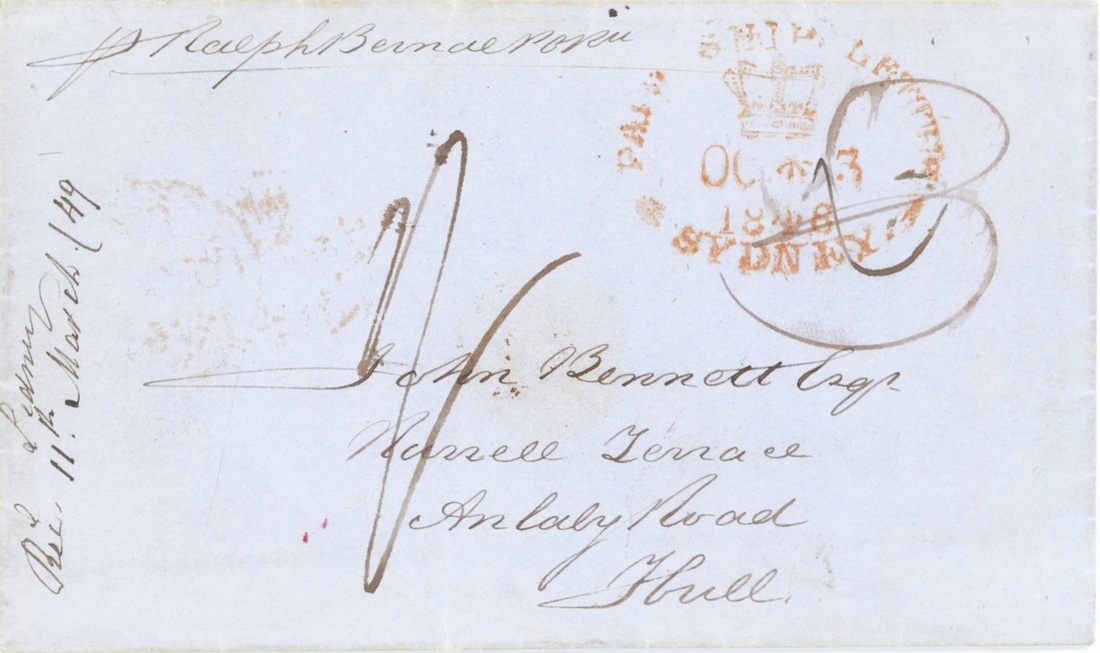 p Ralph Bernal
PAID SHIP LETTER
OC 3
1848
SYDNEY
John Bennett Esqr
Russell Terrace
Anlaby Road
Hull
Rec. 11th March /49